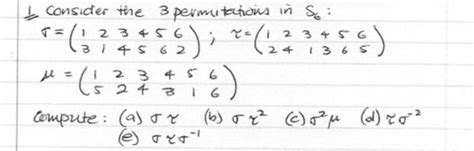 1. Consider the 3 permutations in S₆ :
σ = ( 1 2 3 4 5 6 ) ; τ = ( 1 2 3 4 5 6 )
3 1 4 5 6 2 2 4 1 3 6 5
μ = ( 1 2 3 4 5 6 )
5 2 4 3 1 6
Compute : (a) σ τ (b) σ τ² (c) σ² μ (d) τ σ⁻²
(e) σ τ σ⁻¹